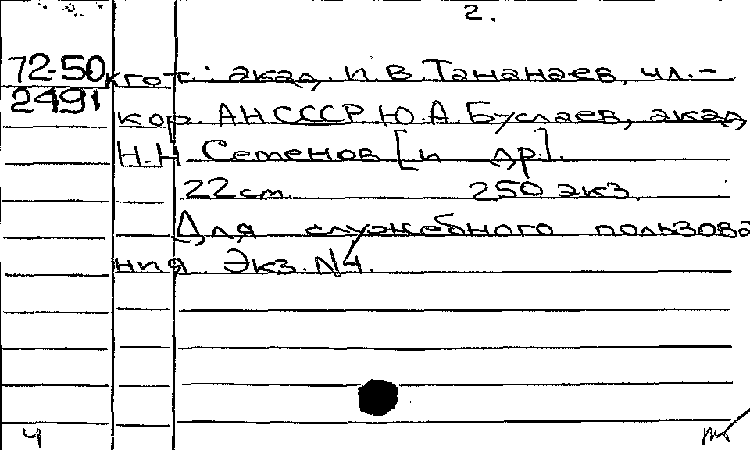 2.
72-50 кгот.: акад. И.В. Тананаев, чл.-
2491 кор. АН СССР Ю.А. Буслаев, акад.
Н.Н. Семенов [и др.].
22 см. 250 экз.
Для служебного пользова
ния. Экз. N4.
4